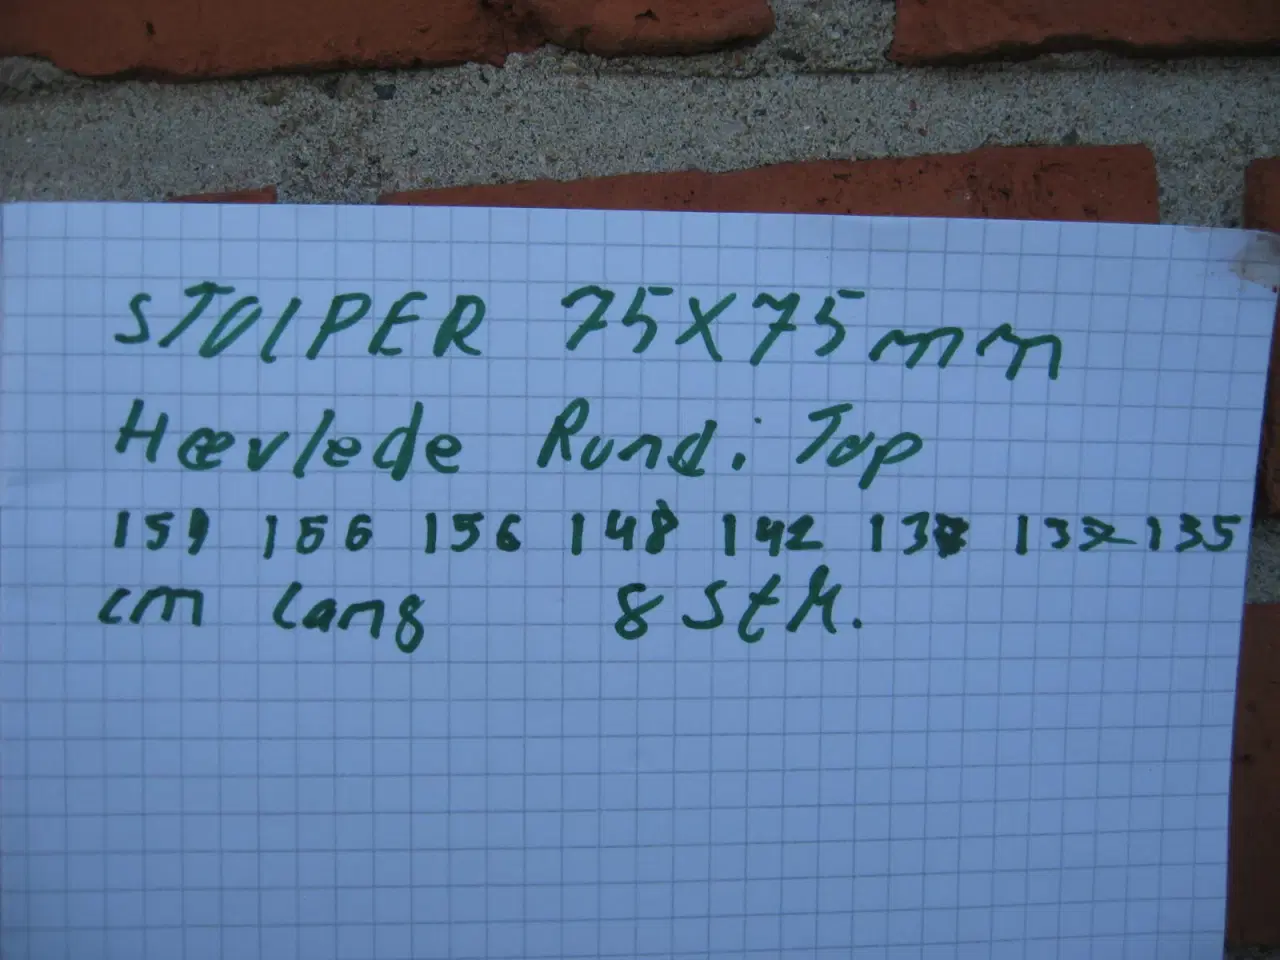 STOLPER 75X75mm
Hævlede Rund i Top
159 156 156 148 142 137 135
cm Lang 8 Stk.